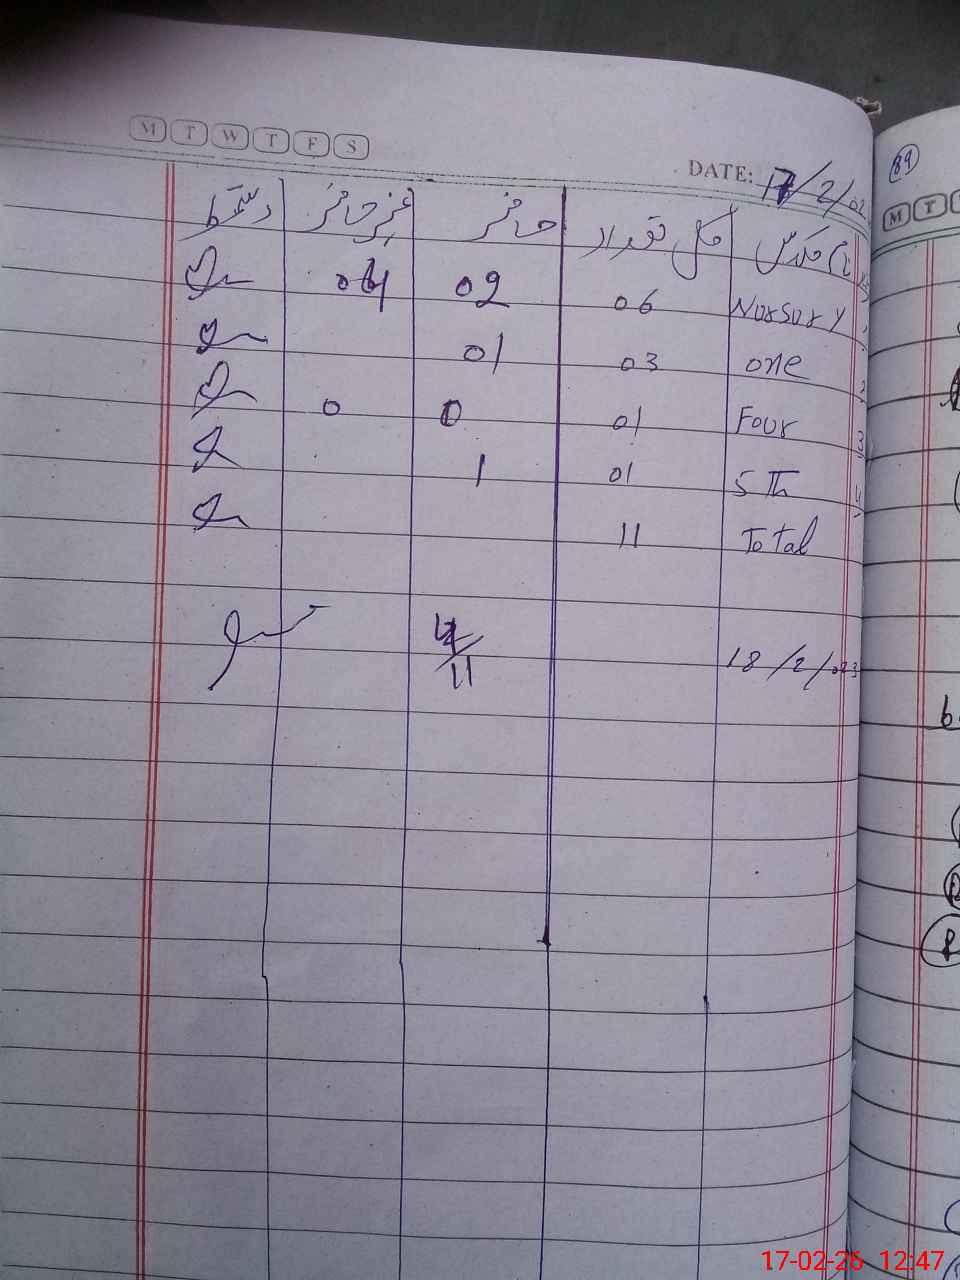 M T W T F S
DATE: 17/2/02
کل تعداد حاضر غیر حاضر دستخط
1 Nursury 06 02 04
2 one 03 01
3 Four 01 0 0
4 5 Th 01 1
Total 11
18/2/023 4/11
89
M T
17-02-26 12:47